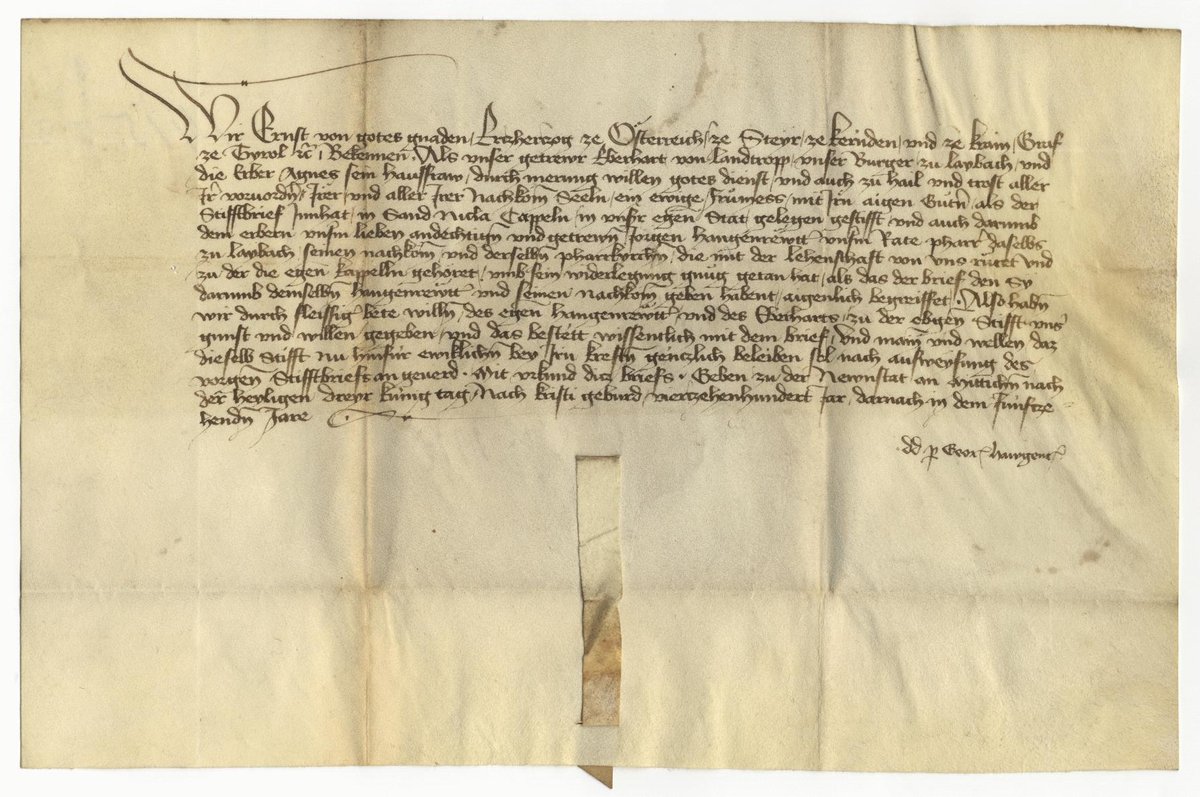 Wir Ernst von gotes gnaden, Ertzhertzog ze Österreich, ze Steyr, ze kernden, und ze krain, Graf
ze Tyrol etc̃, Bekennen. Als unser getrewr Eberhart von landtropp, unser Burger zu laybach, und
die Erber Agnes sein Hausfraw, durch merung willen gotes dienst, und auch zu hail und trost aller
Jr̃ vorvordn̄, Jrer und aller Jrer Nachkom̄ Seeln, ein ewige Frümess, mit Jrn̄ aigen Gutn̄ als der
Stifftbrief Jnnhat, in Sand Nicla Cappeln, in unsr̃ egen̄ Stat gelegen gestifft, und auch darumb
dem erbern unsm̄ lieben andechtign̄ und getrewn̄, Jörigen Hangenrewtt̃ unsm̄ Rate, pharr̃ daselbs
zu laybach, seinen nachkom̄ und derselbn̄ pharrkirchn̄, die mit der lehenschaft von uns rüret und
zu der die egen̄ kappelln gehöret, umb sein widerlegung gnüg getan hat, als das der brief, den Sy
darumb demselbn̄ hangenrewtt̃ und seinen nachkom̄ geben habent, aigenlich begreiffet. Also habn̄
wir durch fleissig̃ bete willn̄, des egen̄ hangenrewtt̃ und des Eberharts, zu der ebgen̄ Stifft uns̃
gunst und willen gegeben, und das bestett wissentlich mit dem brief, Und main̄ und wellen daz
dieselb Stifft nu hinfür ewiklichn̄ bey Jrn kreftn̄ gentzlich beleiben sol nach ausweysung des
vorgen̄ Stifftbriefs an geverd. Mit urkund ditz briefs. Geben zu der Newnstat an Mittichn̄ nach
der heyligen dreyr künig tag, Nach kristi geburd, viertzehenhundert Jar, darnach in dem fünftze-
hendn̄ Jare
dd p̱ Geor̃